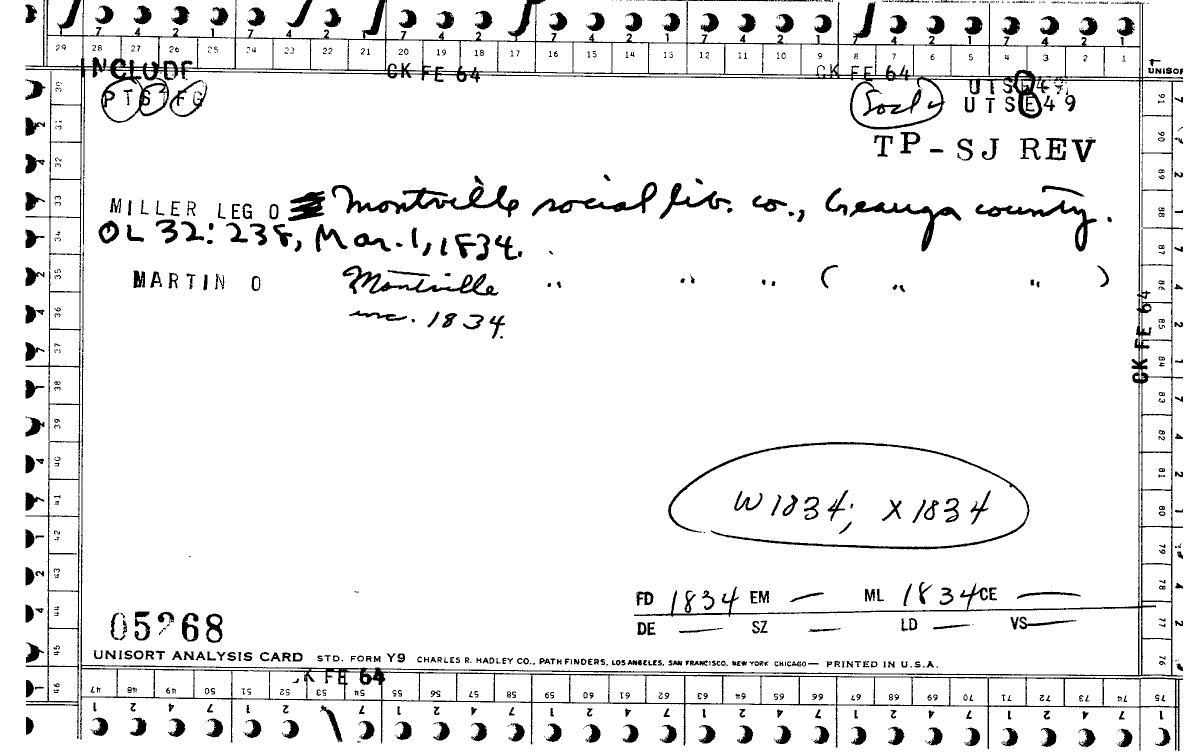 7 4 2 1 7 4 2 1 7 4 2 1 7 4 2 1 7 4 2 1 7 4 2 1 7 4 2 1
29 28 27 26 25 24 23 22 21 20 19 18 17 16 15 14 13 12 11 10 9 8 7 6 5 4 3 2 1
INCLUDE CK FE 64 CK FE 64 UNISOR
PTSTFG Socl UTSE49
UTSE49
TP-SJ REV
MILLER LEG O Montville social lib. co., Geauga county.
OL 32: 238, Mar. 1, 1834.
MARTIN O Montville " " " ( " " )
inc. 1834.
CK FE 64
W 1834; X 1834
FD 1834 EM — ML 1834 CE —
DE — SZ — LD — VS —
05268
UNISORT ANALYSIS CARD STD. FORM Y9 CHARLES R. HADLEY CO., PATHFINDERS, LOS ANGELES, SAN FRANCISCO, NEW YORK CHICAGO — PRINTED IN U.S.A.
CK FE 64
30 31 32 33 34 35 36 37 38 39 40 41 42 43 44 45 46
91 90 89 88 87 86 85 84 83 82 81 80 79 78 77 76 75
47 48 49 50 51 52 53 54 55 56 57 58 59 60 61 62 63 64 65 66 67 68 69 70 71 72 73 74 75
1 2 4 7 1 2 4 7 1 2 4 7 1 2 4 7 1 2 4 7 1 2 4 7 1 2 4 7 1